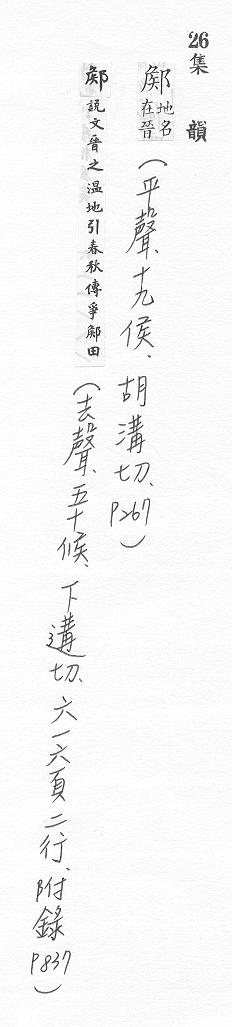 26集韻
鄇地名在晉(平聲、十九侯、胡溝切、P267)
鄇說文晉之温地引春秋傳爭鄇田(去聲、五十候、下遘切、六一六頁二行、附錄P837)